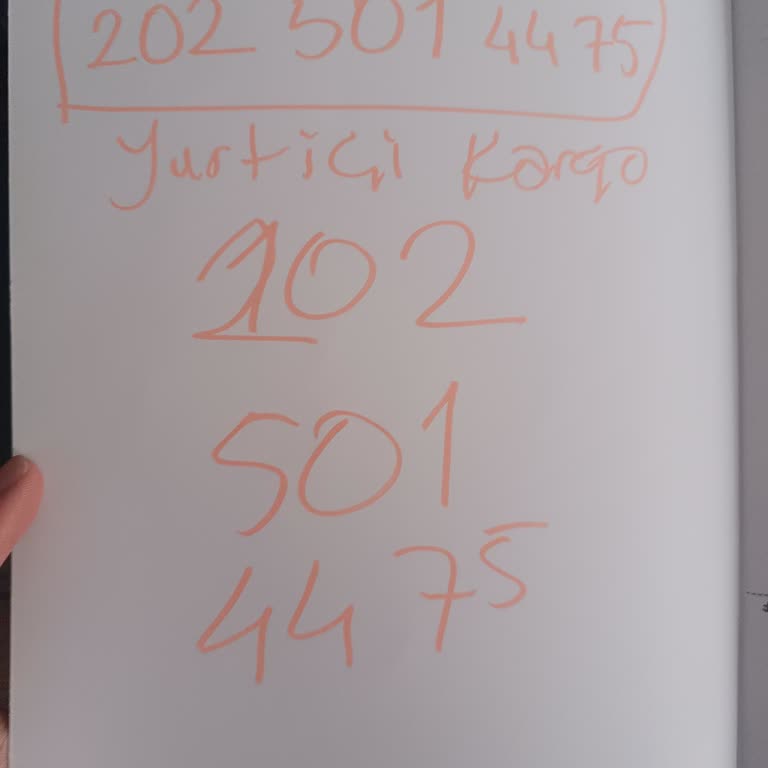 202 501 44 75
Yurtiçi Kargo
202
501
44 75